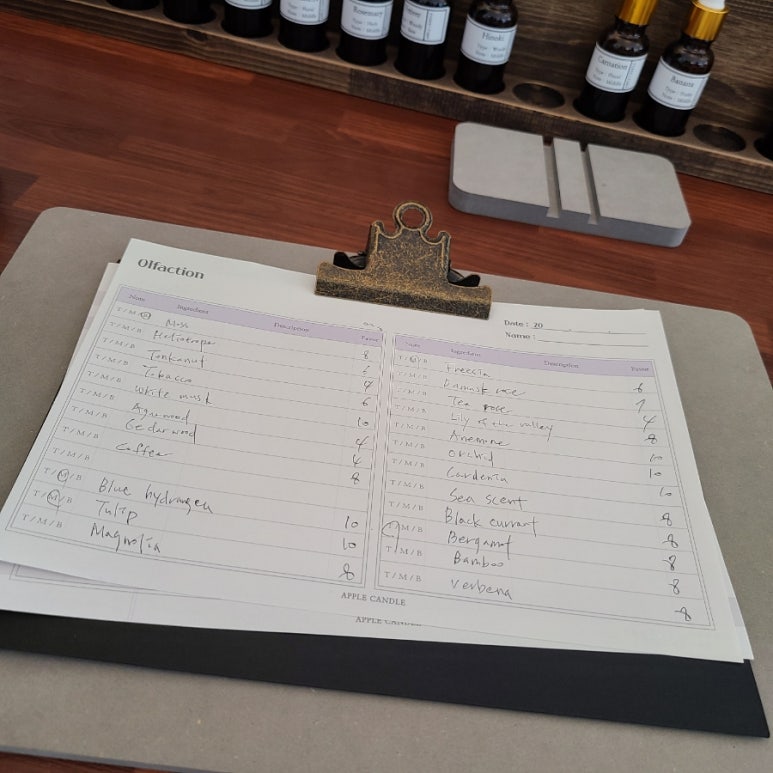 Rosemary
Hinoki
Type : Woody
Note : Middle
Carnation
Type : Floral
Note : Middle
Banana
Type : Fruity
Note : Middle
Olfaction
Date : 20
Name :
Note Ingredient Description Favor
T / M / B Moss 8
T / M / B Heliotrope 6
T / M / B Tonkanut 4
T / M / B Tobacco 6
T / M / B White musk 10
T / M / B Agarwood 4
T / M / B Cedarwood 4
T / M / B Coffee 8
T / M / B Blue hydrangea 10
T / M / B Tulip 10
T / M / B Magnolia 8
Note Ingredient Description Favor
T / M / B Freesia 6
T / M / B Damask rose 7
T / M / B Tea rose 4
T / M / B Lily of the valley 8
T / M / B Anemine 10
T / M / B Orchid 10
T / M / B Gardenia 10
T / M / B Sea scent 8
T / M / B Black currant 8
T / M / B Bergamot 8
T / M / B Bamboo 8
T / M / B Verbena 8
APPLE CANDLE
APPLE CANDLE